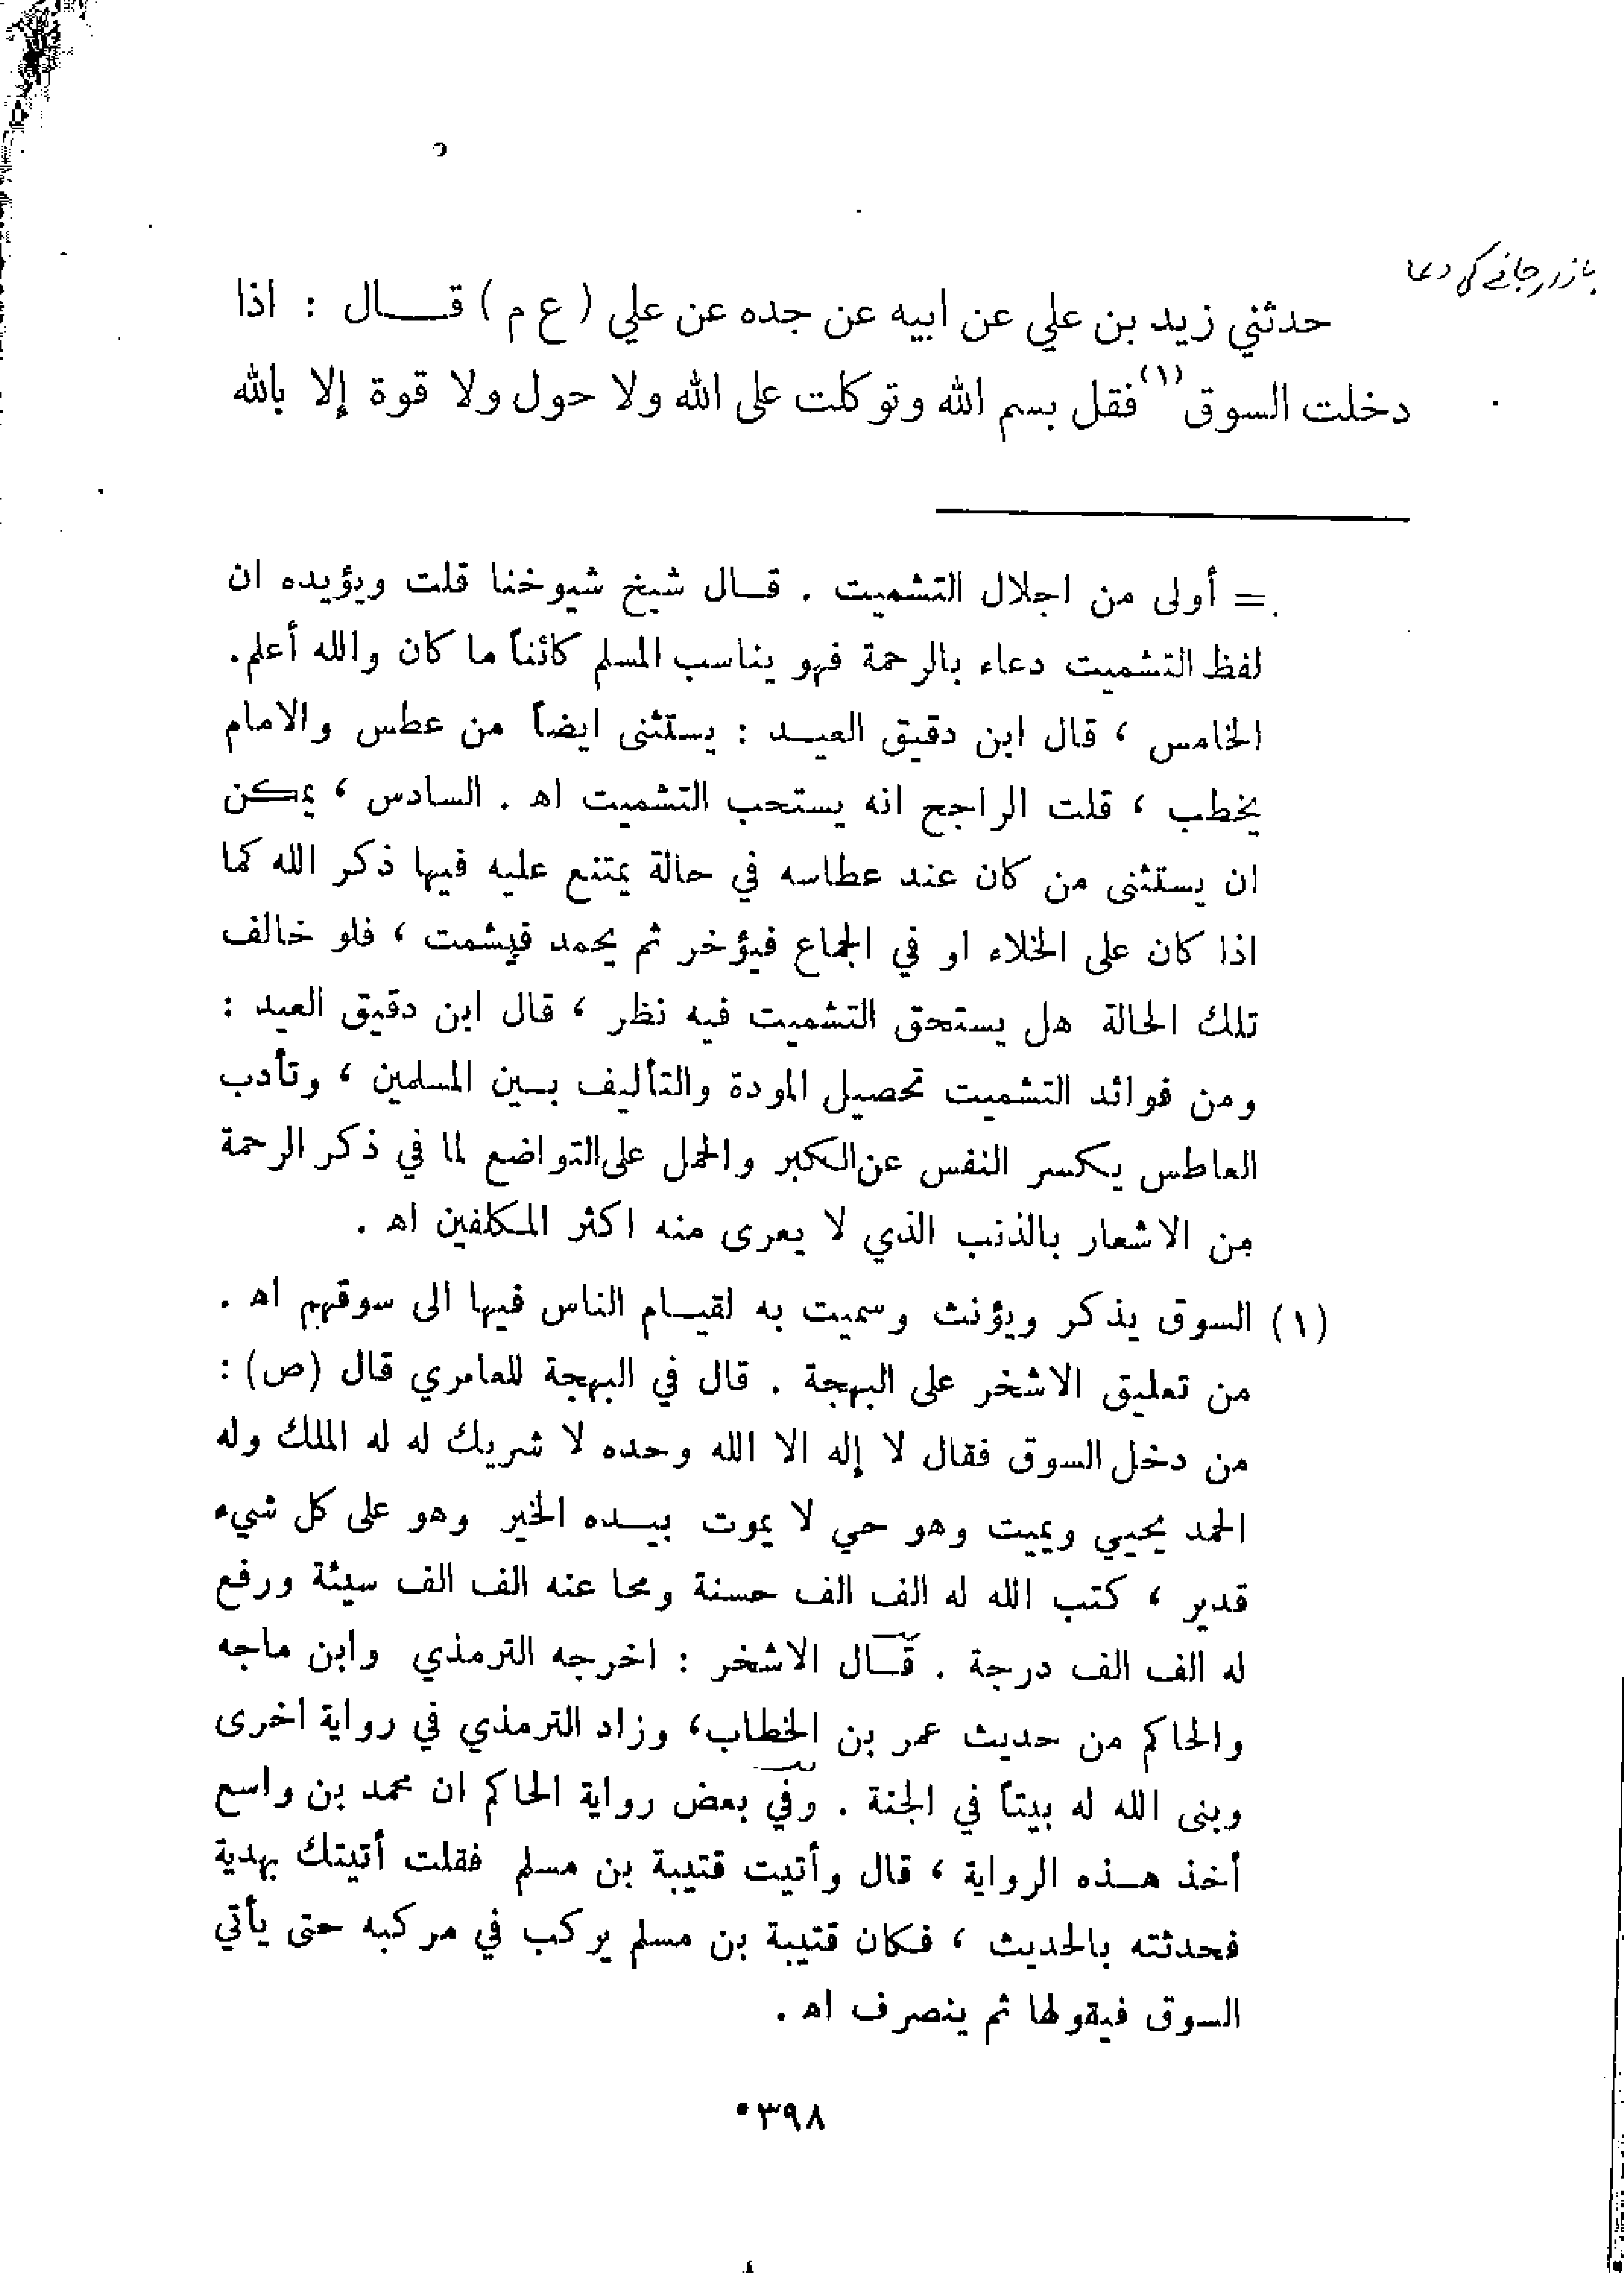 بازار جانے کی دعا
حدثني زيد بن علي عن ابيه عن جده عن علي ( ع م ) قـــال : اذا
دخلت السوق (١) فقل بسم الله وتوكلت على الله ولا حول ولا قوة إلا بالله
= أولى من اجلال التشميت . قـال شيخ شيوخنا قلت ويؤيده ان
لفظ التشميت دعاء بالرحمة فهو يناسب المسلم كائناً ما كان والله أعلم.
الخامس ، قال ابن دقيق العيـد : يستثنى ايضاً من عطس والامام
يخطب ، قلت الراجح انه يستحب التشميت اه . السادس ، يمكن
ان يستثنى من كان عند عطاسه في حالة يمتنع عليه فيها ذكر الله كما
اذا كان على الخلاء او في الجماع فيؤخر ثم يحمد فيشمت ، فلو خالف
تلك الحالة هل يستحق التشميت فيه نظر ، قال ابن دقيق العيد :
ومن فوائد التشميت تحصيل المودة والتأليف بـين المسلمين ، وتأدب
العاطس يكسر النفس عن الكبر والحمل على التواضع لما في ذكر الرحمة
من الاشعار بالذنب الذي لا يعرى منه اكثر المكلفين اه .
(١) السوق يذكر ويؤنث وسميت به لقيـام الناس فيها الى سوقهم اه .
من تعليق الاشخر على البهجة . قال في البهجة للعامري قال (ص) :
من دخل السوق فقال لا إله الا الله وحده لا شريك له له الملك وله
الحمد يحيي ويميت وهو حي لا يموت بيـده الخير وهو على كل شيء
قدير ، كتب الله له الف الف حسنة ومحا عنه الف الف سيئة ورفع
له الف الف درجة . قـال الاشخر : اخرجه الترمذي وابن ماجه
والحاكم من حديث عمر بن الخطاب، وزاد الترمذي في رواية اخرى
وبنى الله له بيتاً في الجنة . وفي بعض رواية الحاكم ان محمد بن واسع
أخذ هـذه الرواية ، قال وأتيت قتيبة بن مسلم فقلت أتيتك بهدية
فحدثته بالحديث ، فكان قتيبة بن مسلم يركب في مركبه حتى يأتي
السوق فيقولها ثم ينصرف اه .
٣٩٨